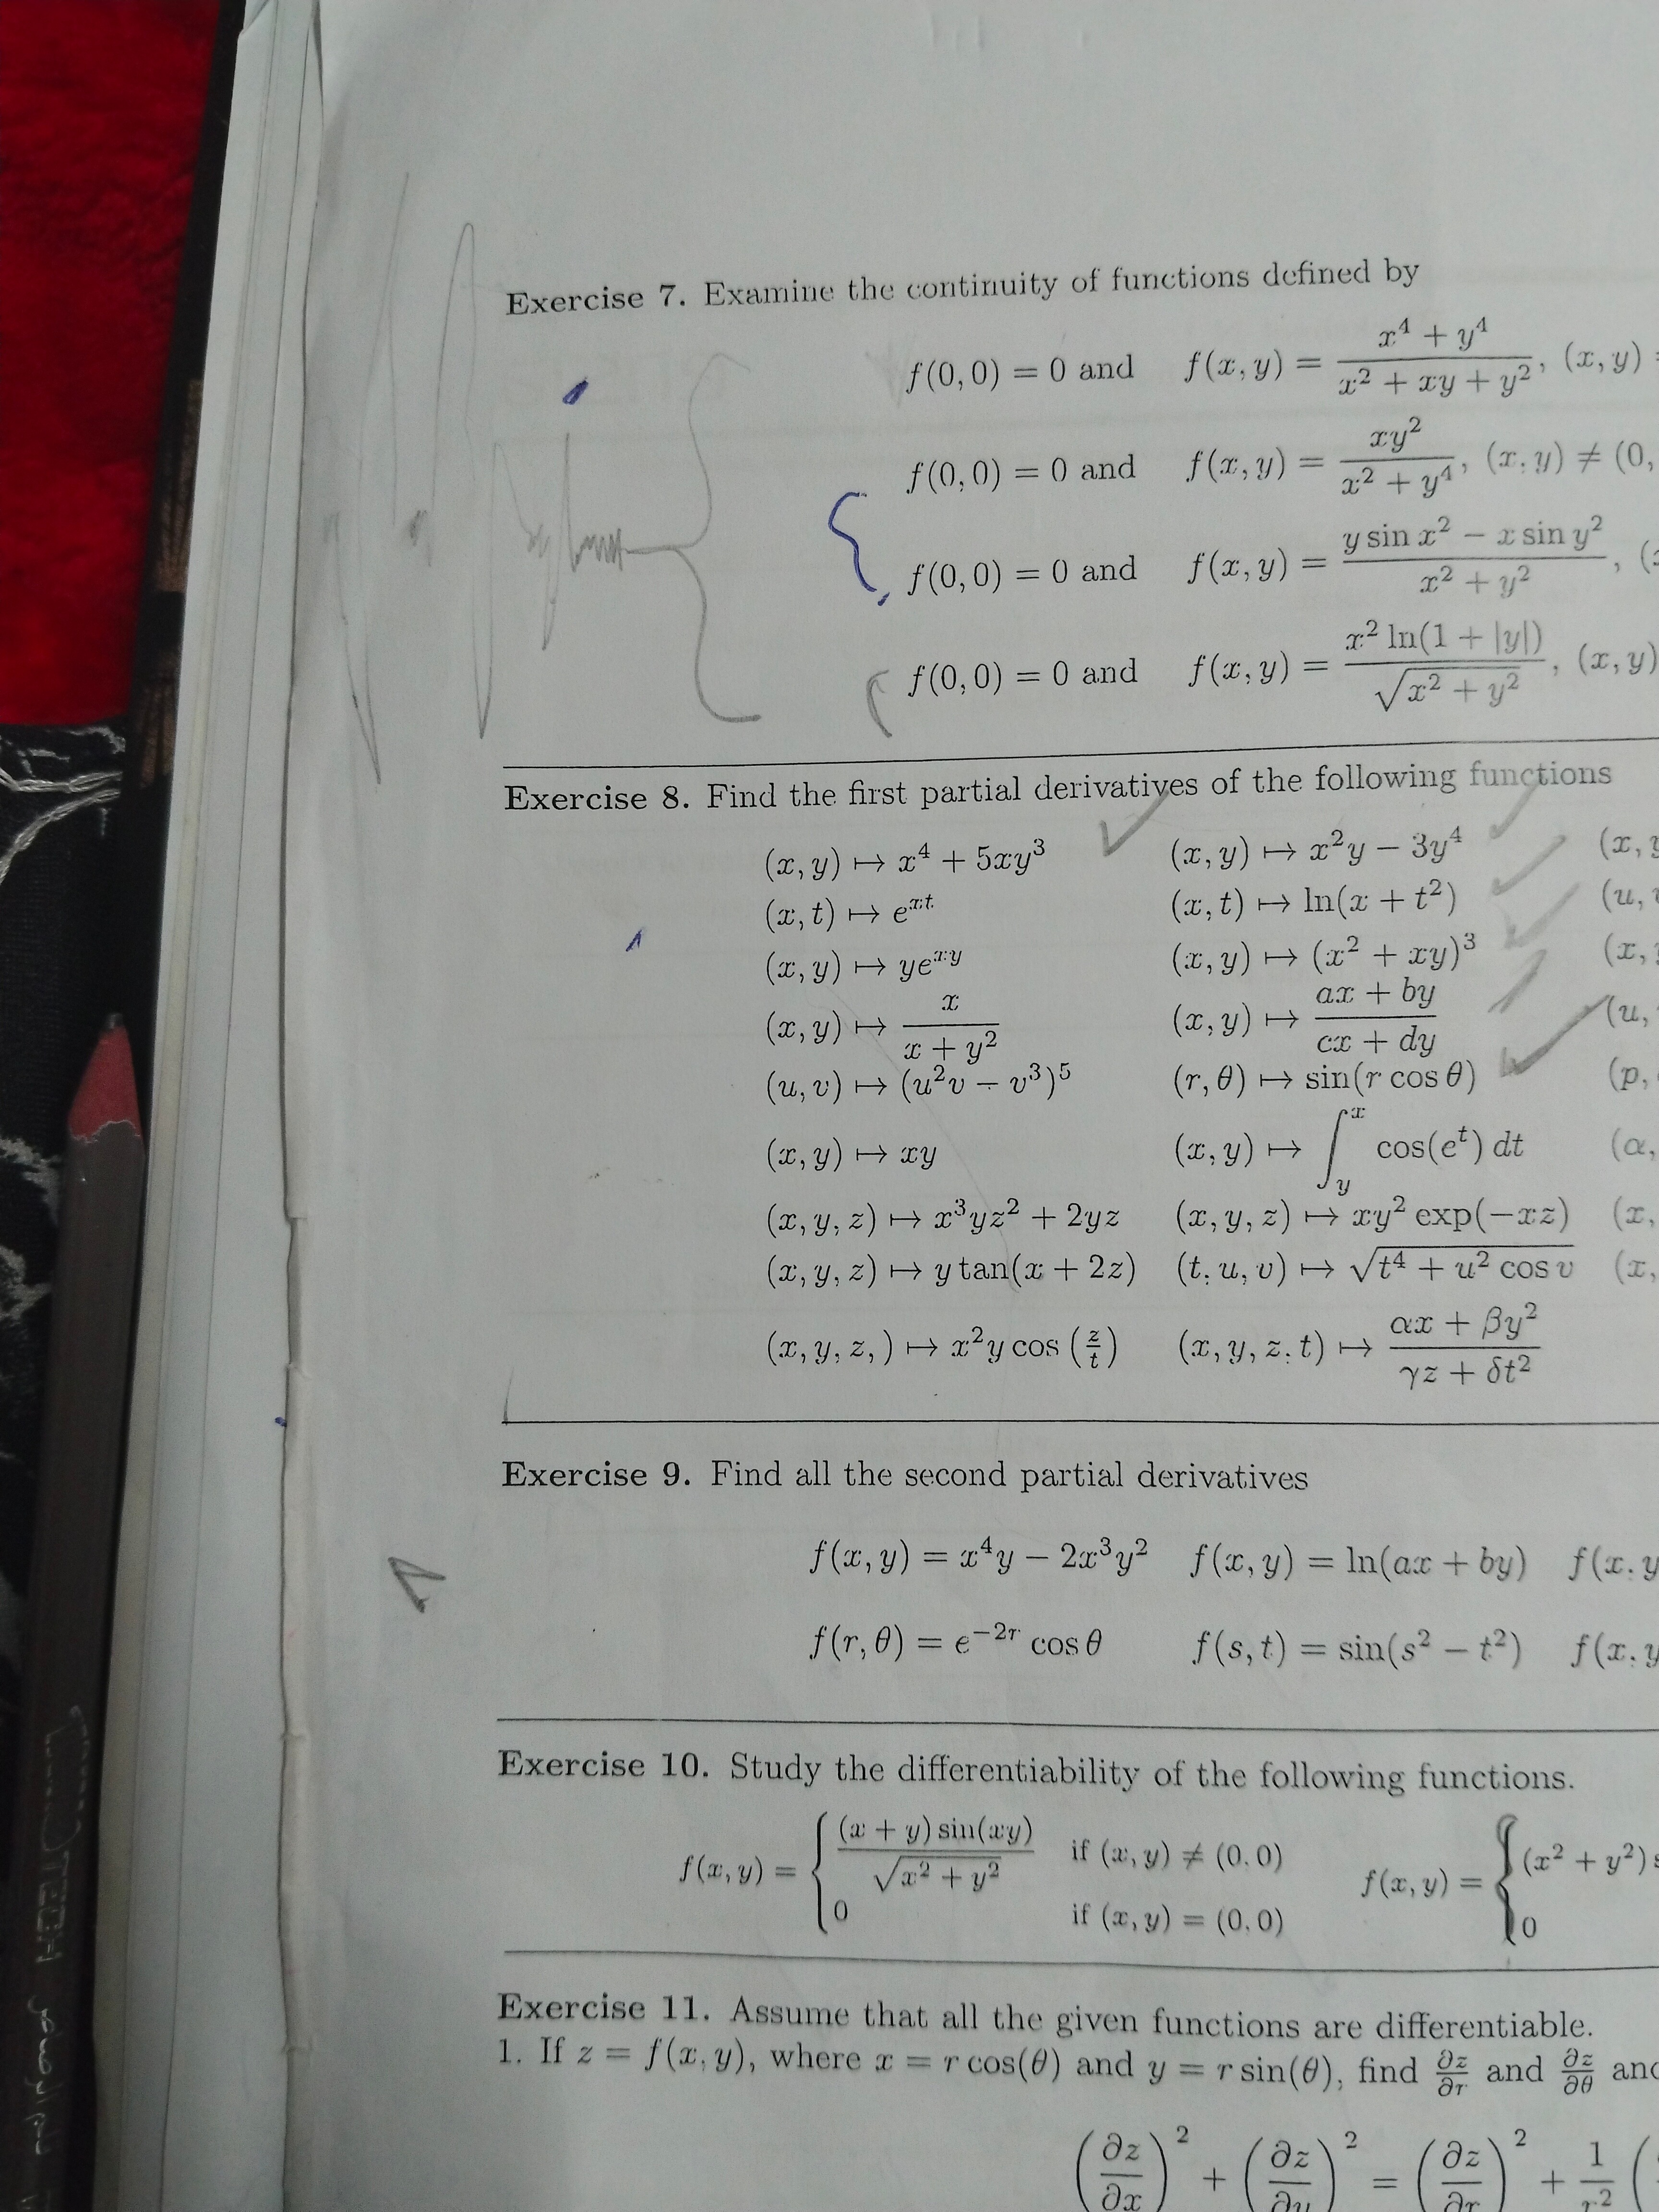 Exercise 7. Examine the continuity of functions defined by
f(0, 0) = 0 and f(x, y) = \frac{x^4 + y^4}{x^2 + xy + y^2}, (x, y)
f(0, 0) = 0 and f(x, y) = \frac{xy^2}{x^2 + y^4}, (x, y) ≠ (0,
f(0, 0) = 0 and f(x, y) = \frac{y sin x^2 − x sin y^2}{x^2 + y^2}, (
f(0, 0) = 0 and f(x, y) = \frac{x^2 ln(1 + |y|)}{\sqrt{x^2 + y^2}}, (x, y)
Exercise 8. Find the first partial derivatives of the following functions
(x, y) ↦ x^4 + 5xy^3 (x, y) ↦ x^2y − 3y^4 (x, y
(x, t) ↦ e^{xt} (x, t) ↦ ln(x + t^2) (u,
(x, y) ↦ ye^{xy} (x, y) ↦ (x^2 + xy)^3 (x,
(x, y) ↦ \frac{x}{x + y^2} (x, y) ↦ \frac{ax + by}{cx + dy} (u,
(u, v) ↦ (u^2v − v^3)^5 (r, θ) ↦ sin(r cos θ) (p,
(x, y) ↦ xy (x, y) ↦ \int_y^x cos(e^t) dt (α,
(x, y, z) ↦ x^3yz^2 + 2yz (x, y, z) ↦ xy^2 exp(−xz) (x,
(x, y, z) ↦ y tan(x + 2z) (t, u, v) ↦ \sqrt{t^4 + u^2 cos v} (x,
(x, y, z,) ↦ x^2y cos (\frac{z}{t}) (x, y, z, t) ↦ \frac{αx + βy^2}{γz + δt^2}
Exercise 9. Find all the second partial derivatives
f(x, y) = x^4y − 2x^3y^2 f(x, y) = ln(ax + by) f(x, y
f(r, θ) = e^{−2r} cos θ f(s, t) = sin(s^2 − t^2) f(x, y
Exercise 10. Study the differentiability of the following functions.
f(x, y) = { \frac{(x + y) sin(xy)}{\sqrt{x^2 + y^2}} if (x, y) ≠ (0, 0) f(x, y) = { (x^2 + y^2) s
0 if (x, y) = (0, 0) 0
Exercise 11. Assume that all the given functions are differentiable.
1. If z = f(x, y), where x = r cos(θ) and y = r sin(θ), find \frac{∂z}{∂r} and \frac{∂z}{∂θ} and
(\frac{∂z}{∂x})^2 + (\frac{∂z}{∂y})^2 = (\frac{∂z}{∂r})^2 + \frac{1}{r^2} (